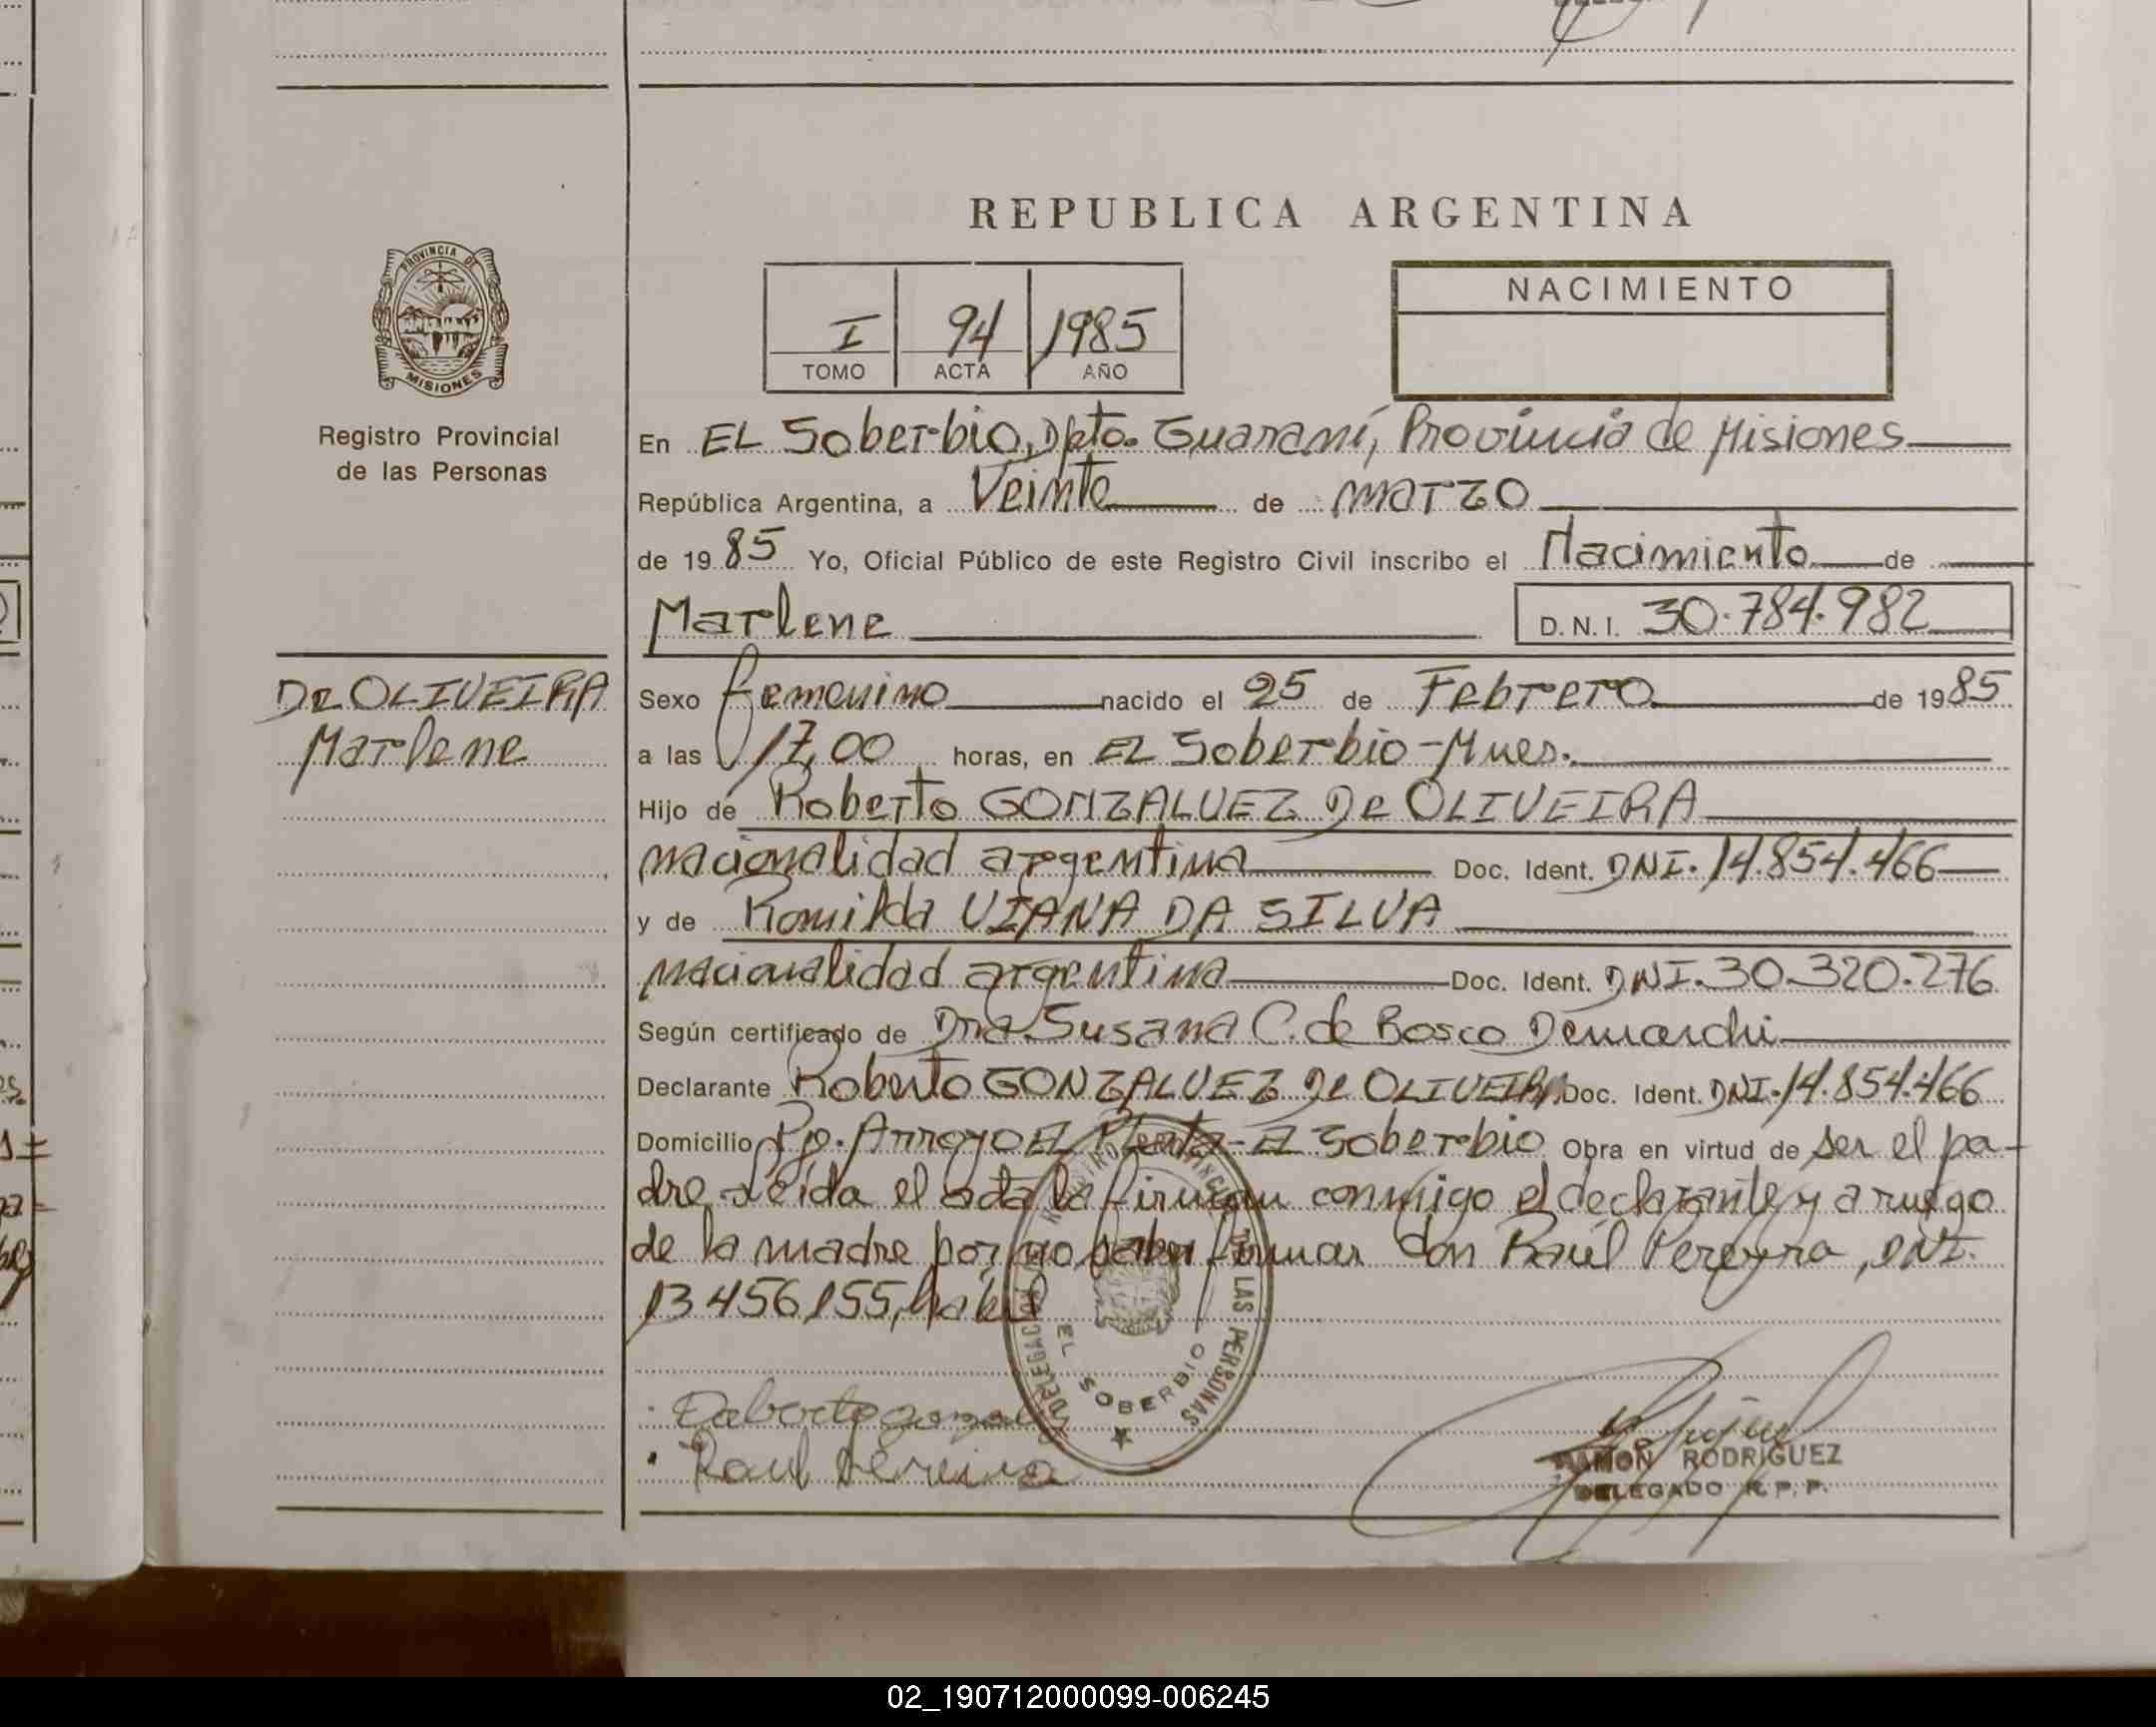 REPUBLICA ARGENTINA
PROVINCIA DE
MISIONES
Registro Provincial
de las Personas
I 94 1985
TOMO ACTA AÑO
NACIMIENTO
En EL Soberbio, Dpto. Guaraní, Provincia de Misiones
República Argentina, a Veinte de marzo
de 1985 Yo, Oficial Público de este Registro Civil inscribo el Nacimiento de
Marlene D.N.I. 30.784.982
De OLIVEIRA
Marlene
Sexo femenino nacido el 25 de Febrero de 1985
a las 17,00 horas, en EL Soberbio-Mnes.
Hijo de Roberto GONZALUEZ De OLIVEIRA
nacionalidad argentina Doc. Ident. DNI. 14.854.466
y de Romilda VIANA DA SILVA
nacionalidad argentina Doc. Ident. DNI. 30.320.276
Según certificado de Dra. Susana C. de Bosco Demarchi
Declarante Roberto GONZALUEZ De OLIVEIRA Doc. Ident. DNI. 14.854.466
Domicilio Pje. Arroyo EL - EL Soberbio Obra en virtud de ser el pa-
dre Leída el acta la firman conmigo el declarante y a ruego
de la madre por no saber firmar don Raúl Pereyra, DNI.
13456,155, hábil
EL SOBERBIO
LAS PERSONAS
Raul Pereira
RAMON RODRIGUEZ
DELEGADO R.P.P.
02_190712000099-006245